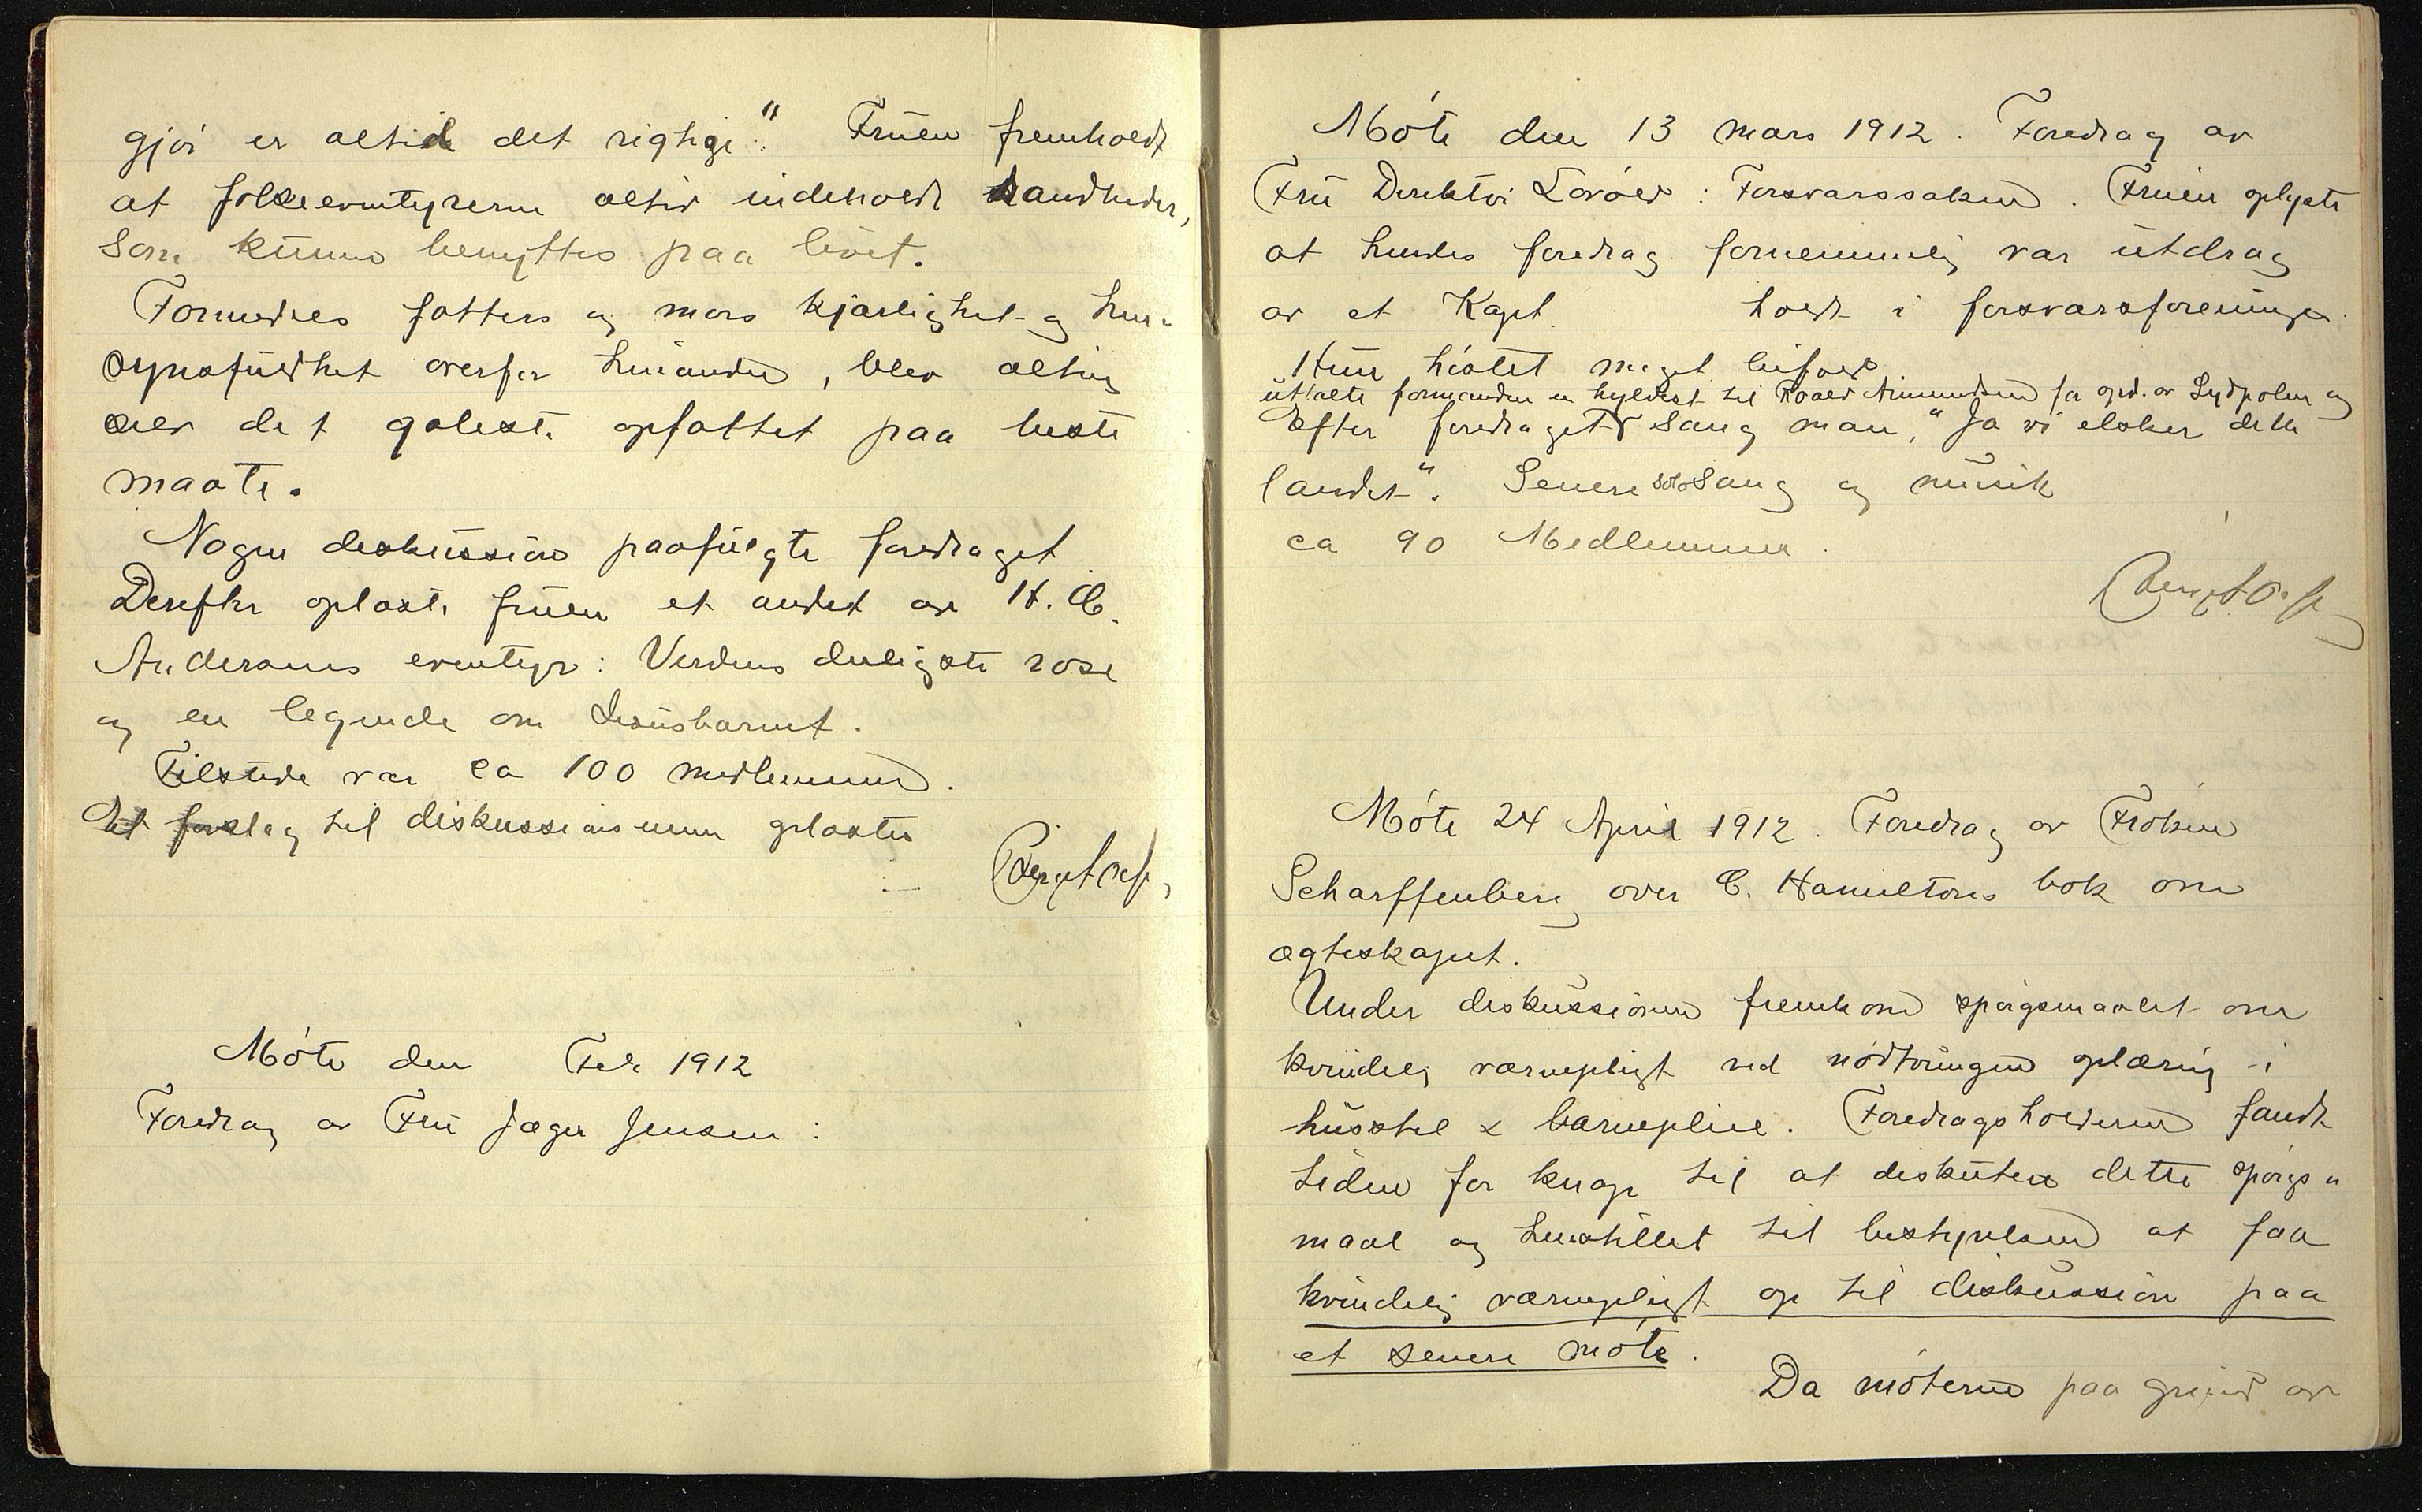 gjør er altid det rigtige". Fruen fremholdt
at folkeeventyrerne altid indeholdt sandheder,
som kunne benyttes paa livet.
Formedels fatters og mors kjærlighet og hen-
synsfuldhet overfor hinanden, blev alting
selv det galeste opfattet paa beste
maate.
Nogen deskussion paafulgte foredraget
Derefter oplæste fruen et andet av H. C.
Andersens eventyr: Verdens deiligste rose
og en legende om Jesusbarnet.
Tilstede var ca 100 medlemmer.
Et forslag til diskussionsemne oplæstes
Møte den Febr 1912
Foredrag av Fru Jæger Jensen :
Møte den 13 mars 1912. Foredrag av
Fru Direktør Lovold : Forsvarssaken. Fruen oplyste
at hendes foredrag fornemmelig var utdrag
av et Kapt. holdt i forsvarsforeninge
Hun høstet meget bifald
uttalte formanden en hyldest til Roald Amundsen for opd. av Sydpolen og
Efter foredraget sang man, "Ja vi elsker dette
landet". Senere solosang og musik
ca 90 Medlemmer.
Møte 24 April 1912. Foredrag av Frøken
Scharffenberg over C. Hamiltons bok om
ægteskapet.
Under diskussionen fremkom spørgsmaalet om
kvindelig værnepligt ved nødtvungen oplæring i
husstel & barnepleie. Foredragsholderen fandt
tiden for knap til at diskutere dette spørgs-
maal og henstillet til bestyrelsen at faa
kvindelig værnepligt op til diskussion paa
et senere møte.
Da møterne paa grund av